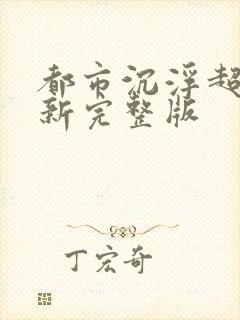 都市沉浮超
新完整版
丁宏奇